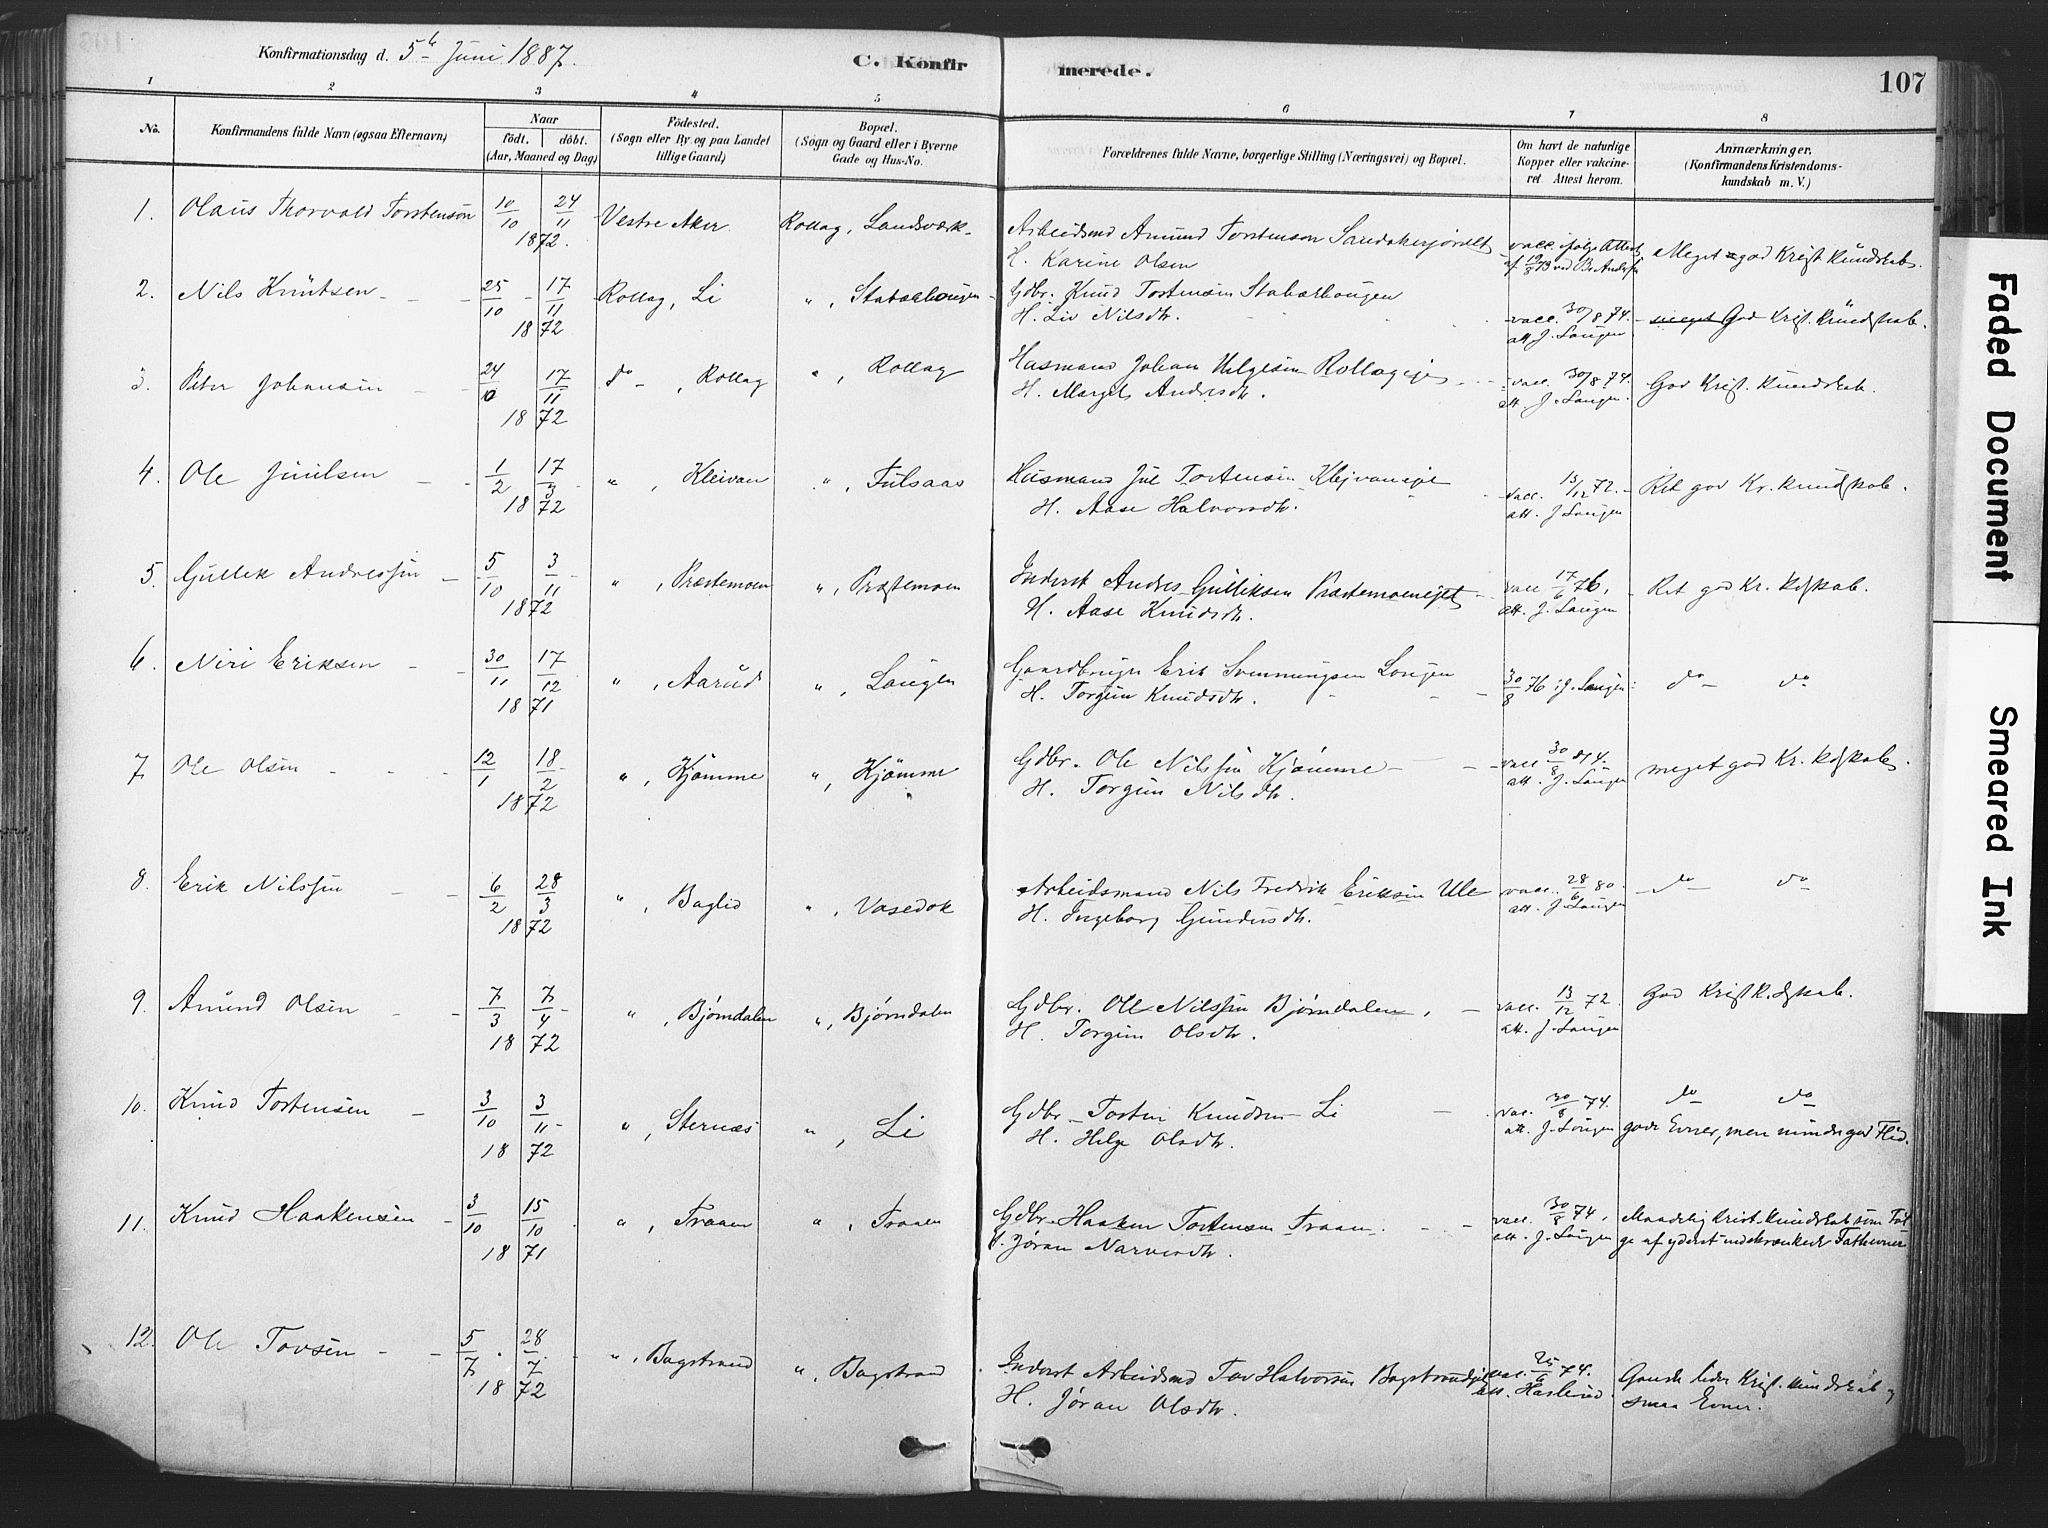 Konfirmationsdag d. 5te Juni 1887.
C. Konfir
merede.
107
1 2 3 4 5 6 7 8
No.
Konfirmandens fulde Navn (ogsaa Efternavn)
Naar
födt. döbt.
(Aar, Maaned og Dag)
Födested.
(Sogn eller By og paa Landet
tillige Gaard)
Bopæl.
(Sogn og Gaard eller i Byerne
Gade og Hus-No.
Forældrenes fulde Navne, borgerlige Stilling (Næringsvei) og Bopæl.
Om havt de naturlige
Kopper eller vakcine-
ret Attest herom.
Anmærkninger.
(Konfirmandens Kristendoms-
kundskab m. V.)
1. Olaus Thorvald Torstensön 10/10 24/11 Vestre Aker. Rollag, Landsværk Arbeidsmd Amund Torstenson vacc. ifölge Attest Meget god Krist. Kundskab.
1872. H. Karine Olsen
2. Nils Knutsen 25/10 17/11 Rollag, Li ", Stabækhaugen Gdbr. Knud Torstensen Stabækhaugen vacc. 30/8 74. meget God Krist. Kundskab.
1872 H. Liv Nilsdtr. att. J. Laugen
3. Peter Johansen 24/10 17/11 do , Rollag ", Rollag Husmand Johan Helgesen Rollageje vacc. 30/8 74. God Krist. Kundskab.
1872 H. Margit Andresdtr. att. J. Laugen.
4. Ole Juulsen 1/2 17/3 ", Kleivan ", Fulsaas Husmand Jul Torstensen Klejvaneje vacc. 13/12 72. Ret god Kr. Kundskab.
1872 H. Aase Halvorsdtr. att. J Laugen
5. Gullek Andressen 5/10 3/11 ", Præstemoen ", Præstemoen Inderst Andres Gulliksen Præstemoenejet vacc 17/6 76, Ret god Kr. Kdskab.
1872 H. Aase Knudsdtr. att. J. Laugen
6. Niri Eriksen 30/11 17/12 ", Aarud ", Laugen Gaardbruger Erik Svenningsen Laugen 30/8 76 J. Laugen do do
1871 H. Torgun Knudsdtr.
7. Ole Olsen 12/1 18/2 ", Kjömme ", Kjömme Gdbr. Ole Nilssen Kjömme vacc 30/8 74. meget god Kr. Kdskab.
1872 H. Torgun Nilsdtr. att. J. Laugen
8. Erik Nilssen 6/2 28/3 ", Baglid ", Vasedok Arbeidsmand Nils Fredrik Eriksen Ule vacc. 28/6 80. do do
1872 H. Ingeborg Gundersdtr. att. J. Laugen
9. Amund Olsen 7/3 7/4 ", Bjørndalen ", Bjørndalen Gdbr. Ole Nilssen Bjørndalen, vacc. 13/12 72. God Krist K.dskab.
1872 H. Torgun Olsdtr. att. J. Laugen
10. Knud Torstensen 3/10 3/11 ", Sternæs ", Li Gdbr Torsten Knudsen Li vac. 30/8 74. do do
1872 H. Helge Olsdtr. att. J. Laugen gode Evner, men mindre god Flid.
11. Knud Haakensen 3/10 15/10 ", Traaen ", Traaen Gdbr. Haaken Torstensen Traaen. vacc. 30/8 74, Maadelig Krist. Kundskab som Föl-
1871 H. Jøran Narvesdtr. att. J. Laugen ge af yderst indskrænkede Fatteevner
12. Ole Tovsen 5/7 28/7 ", Bagstrand ", Bagstrand Inderst Arbeidsmd Tov Halvorsen vac. 25/6 74. Ganske liden Krist. Kundskab og
1872 H. Jøran Olsdtr. att. Haslund. smaa Evner.
Faded Document
Smeared Ink